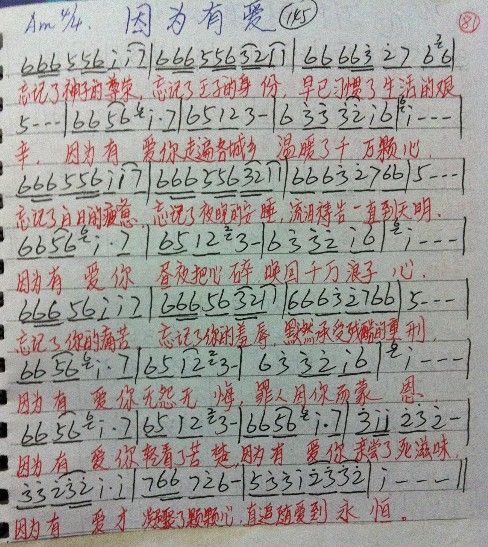 Am 4/4. 因为有爱 (145) (81)
666 556 i i 7 | 666 556 3 2 1 7 | 6 6 6 6 3 2 7 6 6
忘记了神子的尊荣,忘记了王子的身份,早已习惯了生活的艰
5 - - - | 6 6 5 6 i . 7 | 6 5 1 2 3 - | 6 3 3 3 2 i 6 | i - - - |
辛,因为有 爱你走遍各城乡 温暖了千万颗心
666 556 i i 7 | 666 556 3 2 1 7 | 6 6 6 3 2 7 6 6 | 5 - - -
忘记了白日的疲惫,忘记了夜晚的安睡,流泪祷告一直到天明.
6 6 5 6 i . 7 | 6 5 1 2 3 - | 6 3 3 2 i 6 | i - - -
因为有 爱你 昼夜把心碎 唤回千万浪子心.
666 56 i i 7 | 666 56 3 2 1 7 | 6 6 6 3 2 7 6 6 | 5 - - -
忘记了你的痛苦 忘记了你的羞辱,默然承受残酷的重刑,
6 6 5 6 i . 7 | 6 5 1 2 3 - | 6 3 3 2 i 6 | i - - -
因为有 爱你无怨无悔,罪人因你而蒙恩.
6 6 5 6 i . 7 | 6 5 1 2 3 - | 6 6 5 6 i . 7 | 3 i i 2 3 2 -
因为有 爱你轻看了苦楚,因为有 爱你亲尝了死滋味,
3 3 2 3 2 i . i | 7 6 6 7 2 6 - | 5 3 3 i 2 3 3 2 | i - - - ||
因为有 爱才凝聚了颗颗心,直追随爱到永恒。